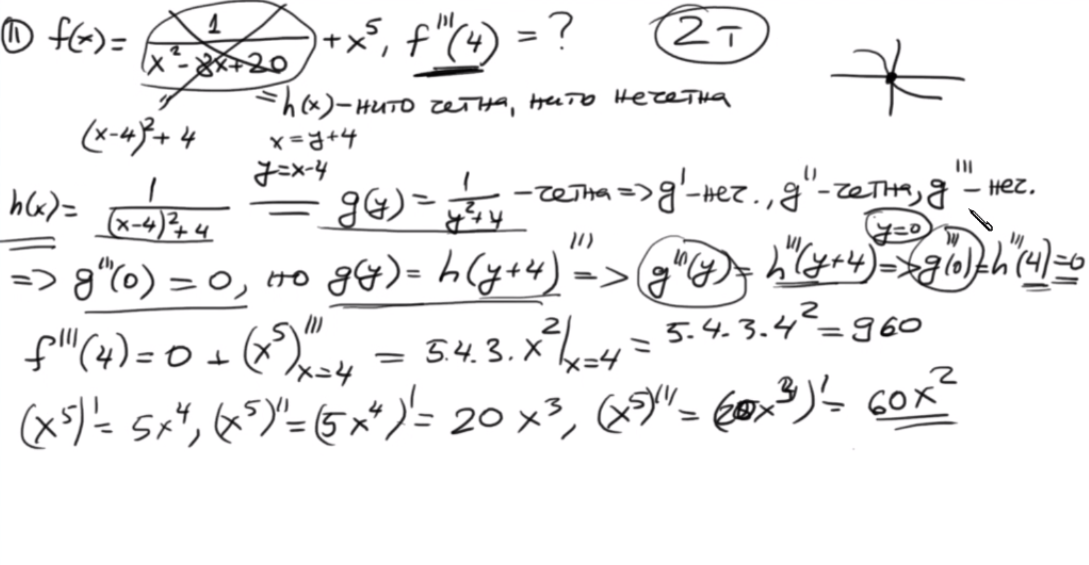 ⑪ f(x) = 1/(x² - 8x + 20) + x⁵, f'''(4) = ? 2т
(x-4)² + 4
= h(x) – нито четна, нито нечетна
x = y+4
y = x-4
h(x) = 1/((x-4)² + 4) = g(y) = 1/(y² + 4) – четна => g' – неч., g'' – четна, g''' – неч.
y=0
=> g'''(0) = 0, но g(y) = h(y+4) ''' => g'''(y) = h'''(y+4) => g'''(0) = h'''(4) = 0
f'''(4) = 0 + (x⁵)'''ₓ₌₄ = 5.4.3.x²|ₓ₌₄ = 5.4.3.4² = 960
(x⁵)' = 5x⁴, (x⁵)'' = (5x⁴)' = 20x³, (x⁵)''' = (20x³)' = 60x²